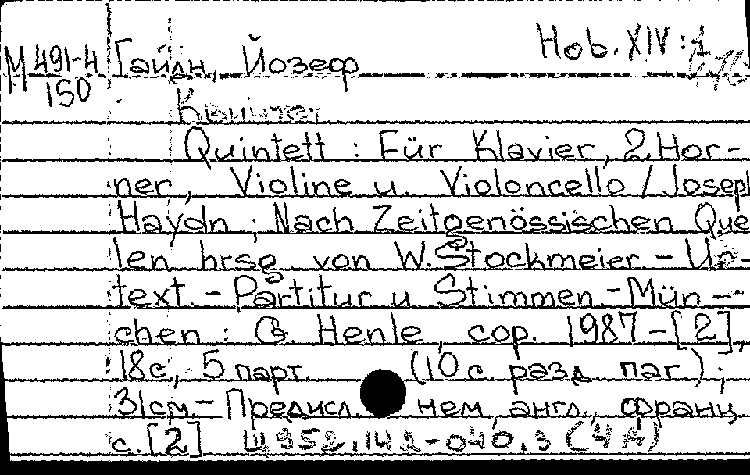 Hob. XIV:1
М 491-4 Гайдн, Йозеф
150
Квинтет
Quintett : Für Klavier, 2 Hor-
ner, Violine u. Violoncello / Joseph
Haydn ; Nach Zeitgenössischen Que
len hrsg. von W. Stockmeier - Ur-
text. - Partitur u Stimmen - Mün-
chen : G. Henle, cop. 1987 - [2],
18 с., 5 парт. (10 с. разд паг.) ;
31 см. - Предисл. нем, англ., франц
с. [2] Ш952.142-040.3 (4 А)